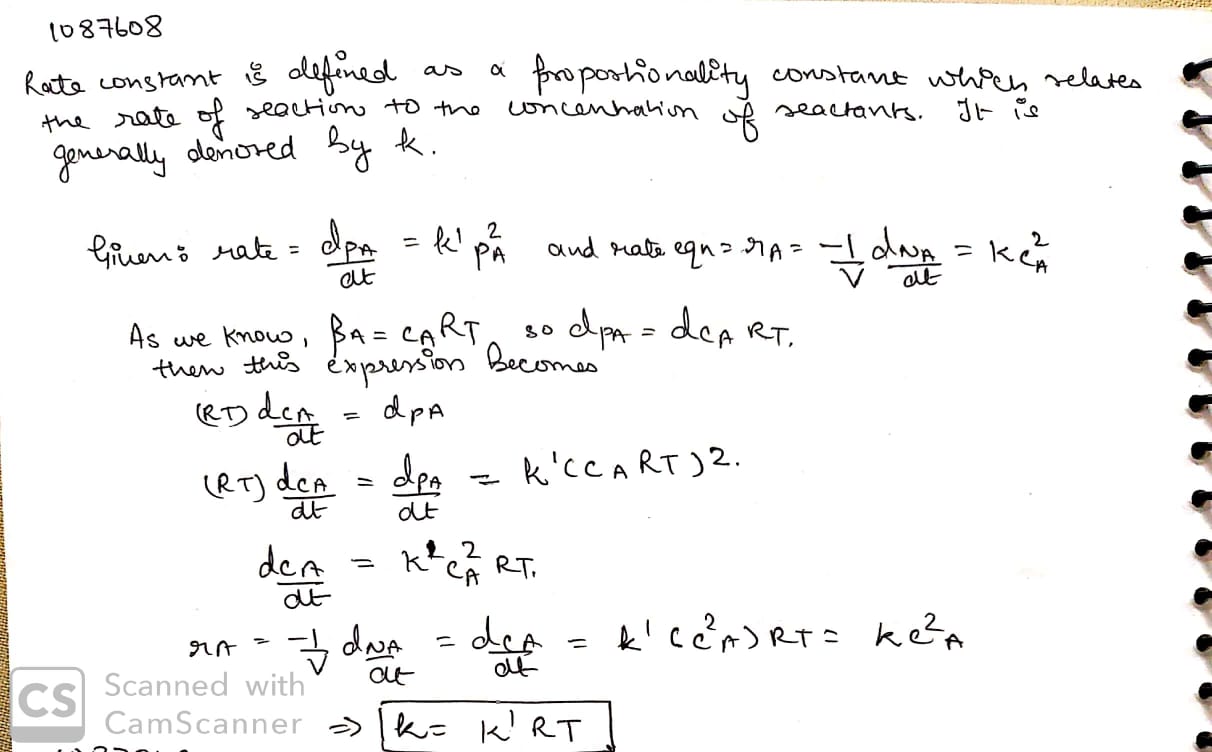 1087608
Rate constant is defined as a proportionality constant which relates
the rate of reaction to the concentration of reactants. It is
generally denoted by k.
Given: rate = dpA/dt = k' pA² and rate eqn = rA = -1/V dNA/dt = k cA²
As we know, pA = cART, so dpA = dcA RT.
then this expression becomes
(RT) dcA/dt = dpA
(RT) dcA/dt = dpA/dt = k'(CART)2.
dcA/dt = k' cA² RT.
rA = -1/V dNA/dt = dcA/dt = k' (c²A) RT = kc²A
CS Scanned with
CamScanner
⇒ k = k' RT